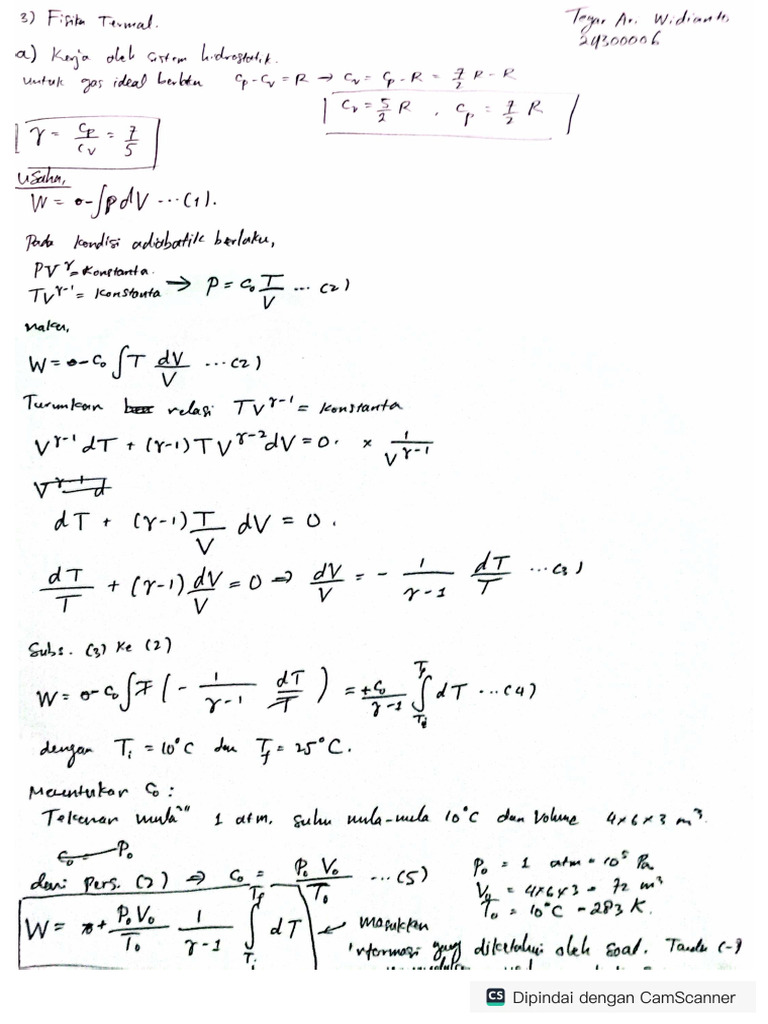 3) Fisika Termal.
Tegar Ar. Widianto
24300006
a) Kerja oleh sistem hidrostatik.
untuk gas ideal berlaku Cp - Cv = R → Cv = Cp - R = 7/2 R - R
Cv = 5/2 R , Cp = 7/2 R
γ = Cp/Cv = 7/5
Usaha,
W = -∫PdV ...(1).
Pada kondisi adiabatik berlaku,
PV^γ = Konstanta.
TV^γ-1 = Konstanta → P = C₀ T/V ... (2)
maka,
W = -C₀ ∫T dV/V ...(2)
Turunkan relasi TV^γ-1 = Konstanta
V^γ-1 dT + (γ-1)TV^γ-2 dV = 0. × 1/V^γ-1
dT + (γ-1) T/V dV = 0.
dT/T + (γ-1) dV/V = 0 ⇒ dV/V = - 1/γ-1 dT/T ...(3)
Subs. (3) ke (2)
W = -C₀∫T(- 1/γ-1 dT/T) = +C₀/γ-1 ∫Ti Tf dT ...(4)
dengan Ti = 10°C dan Tf = 25°C.
Menentukan C₀ :
Tekanan mula" 1 atm, suhu mula-mula 10°C dan Volume 4×6×3 m³.
dari Pers. (2) ⇒ C₀ = P₀ V₀/T₀ ...(5)
P₀ = 1 atm = 10⁵ Pa
V₀ = 4×6×3 = 72 m³
T₀ = 10°C = 283 K.
W = + P₀V₀/T₀ 1/γ-1 ∫Ti Tf dT ← masukkan
informasi yang diketahui oleh soal. Tanda (-)
CS Dipindai dengan CamScanner